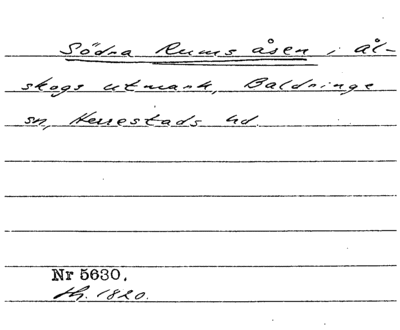 Södra Rums åsen i ål-
skogs utmark, Baldringe
sn, Herrestads hd.
Nr 5630.
th. 1820.